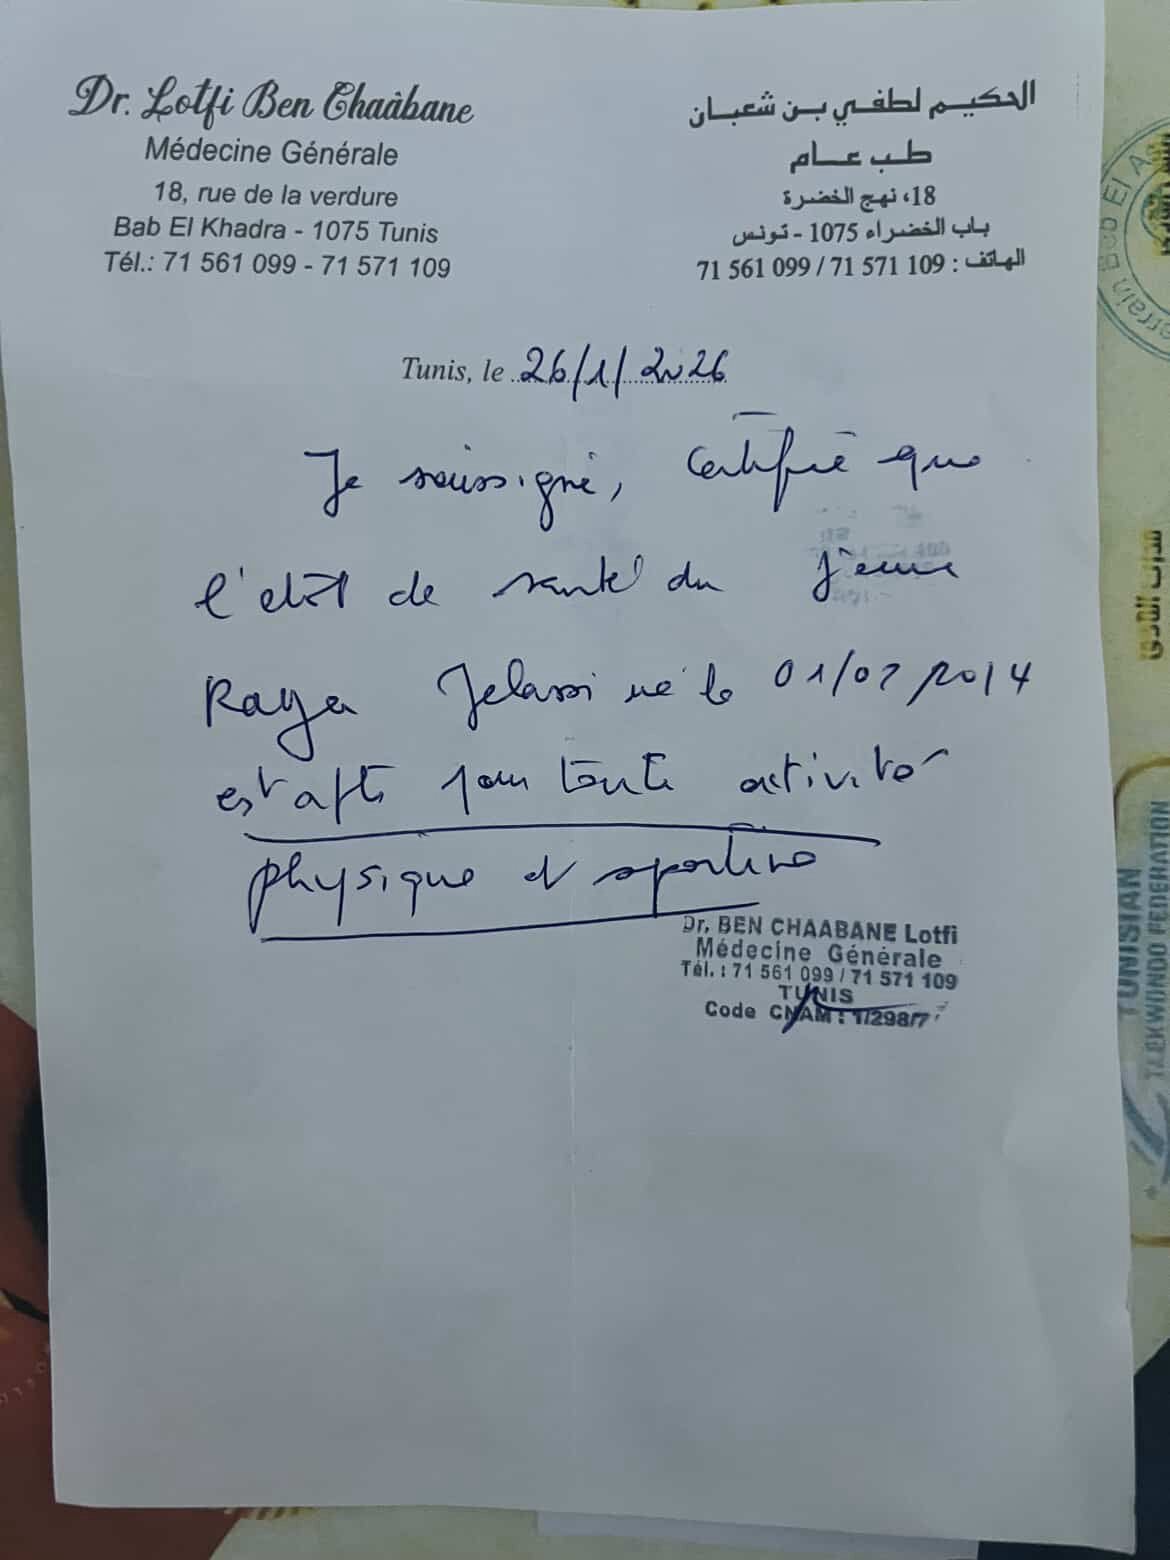 Dr. Lotfi Ben Chaâbane
Médecine Générale
18, rue de la verdure
Bab El Khadra - 1075 Tunis
Tél.: 71 561 099 - 71 571 109
الحكيم لطفي بن شعبان
طب عام
18، نهج الخضرة
باب الخضراء 1075 - تونس
الهاتف : 71 561 099 / 71 571 109
Tunis, le 26/1/2026
Je soussigné, certifie que
l'état de santé du jeune
Raya Jelassi né le 01/07/2014
est apte pour toute activité
physique et sportive
Dr. BEN CHAABANE Lotfi
Médecine Générale
Tél. : 71 561 099 / 71 571 109
TUNIS
Code CNAM : 1/298/7
Bab El A
TUNISIAN
TAEKWONDO FEDERATION